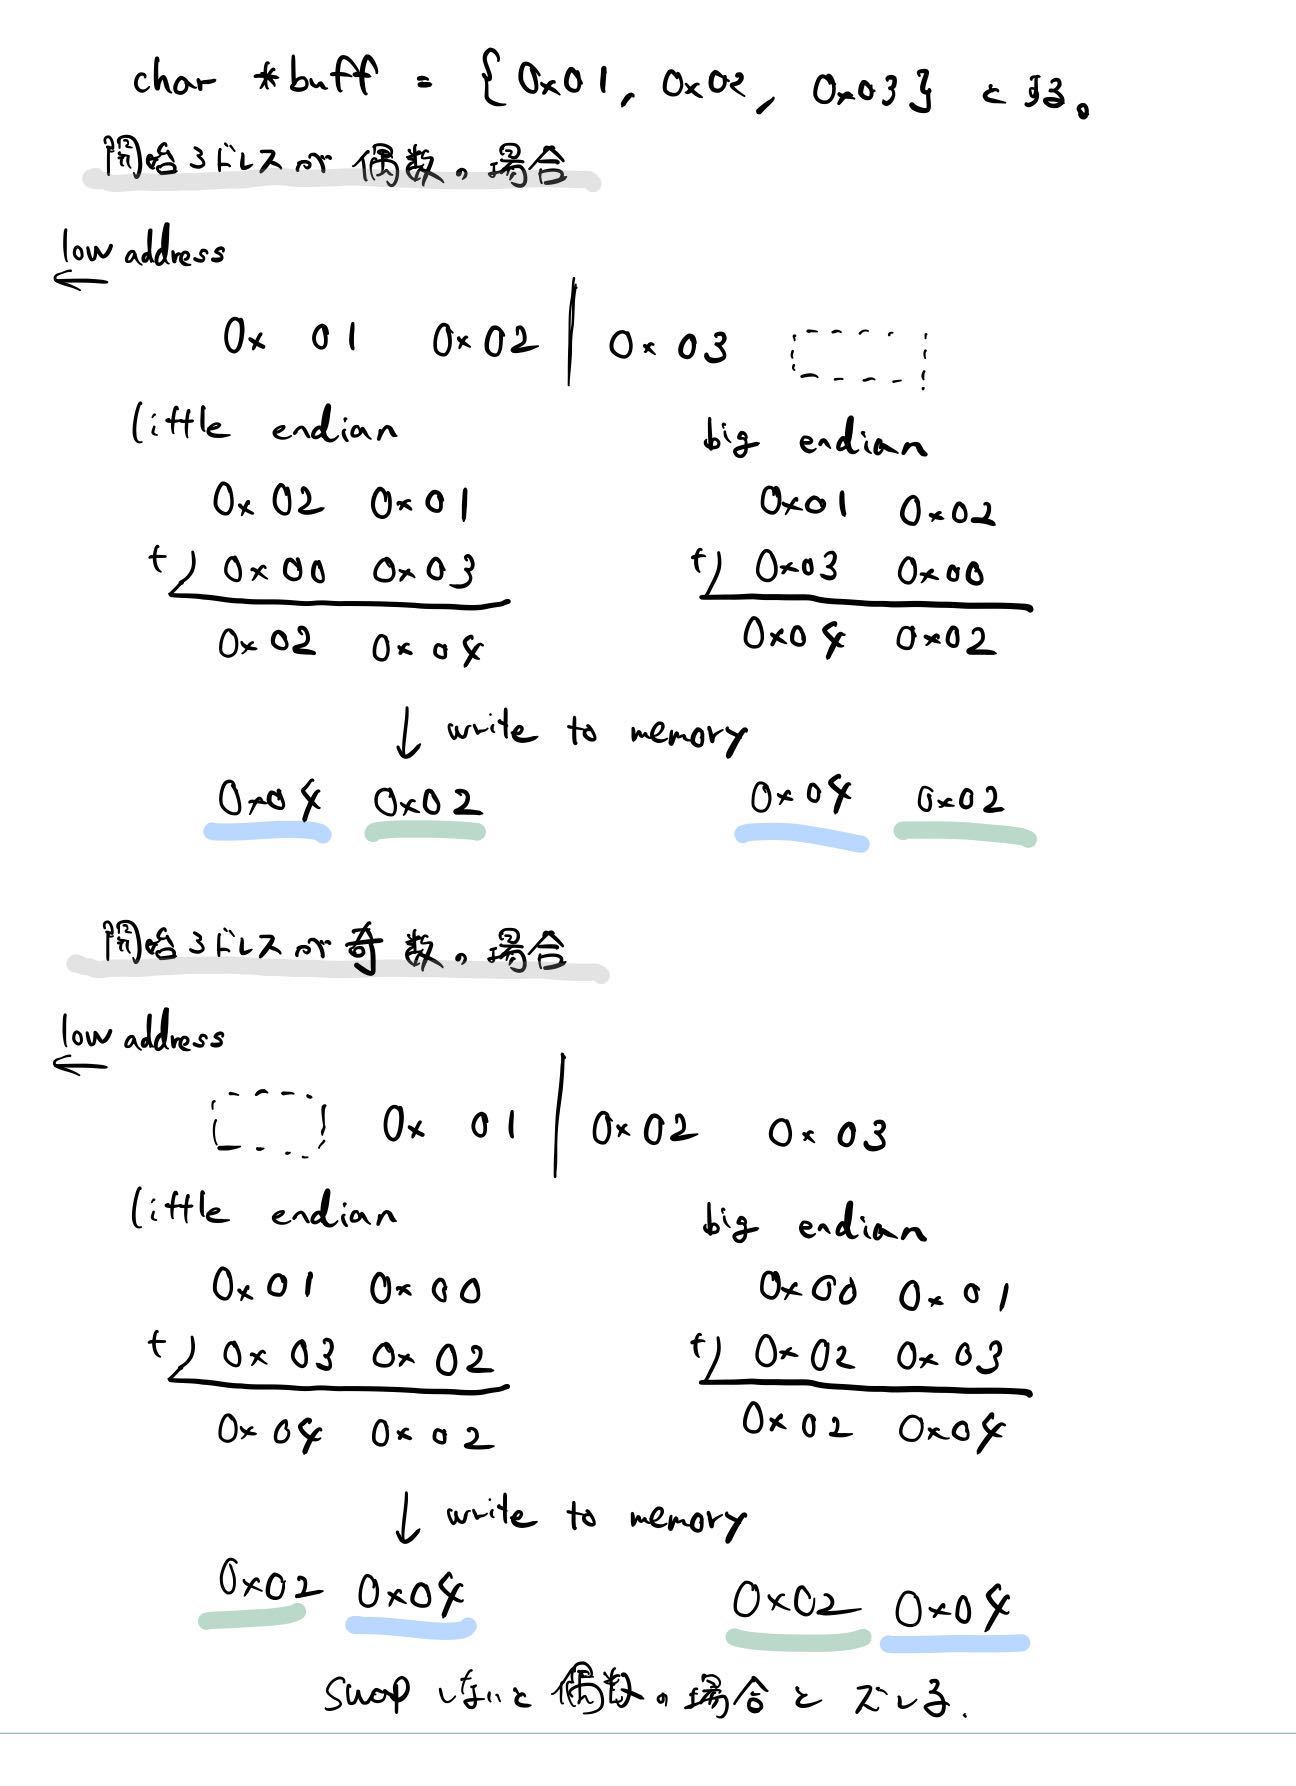 char *buff = {0x01, 0x02, 0x03} とする。
開始アドレスが偶数の場合
low address
←
0x 01 0x02 | 0x 03
little endian big endian
0x 02 0x 01 0x01 0x02
+) 0x 00 0x 03 +) 0x03 0x00
0x 02 0x 04 0x04 0x02
↓ write to memory
0x04 0x02 0x04 0x02
開始アドレスが奇数の場合
low address
←
0x 01 | 0x 02 0x 03
little endian big endian
0x 01 0x 00 0x00 0x 01
+) 0x 03 0x 02 +) 0x 02 0x 03
0x 04 0x 02 0x 02 0x04
↓ write to memory
0x02 0x04 0x02 0x04
swap しないと偶数の場合とズレる.